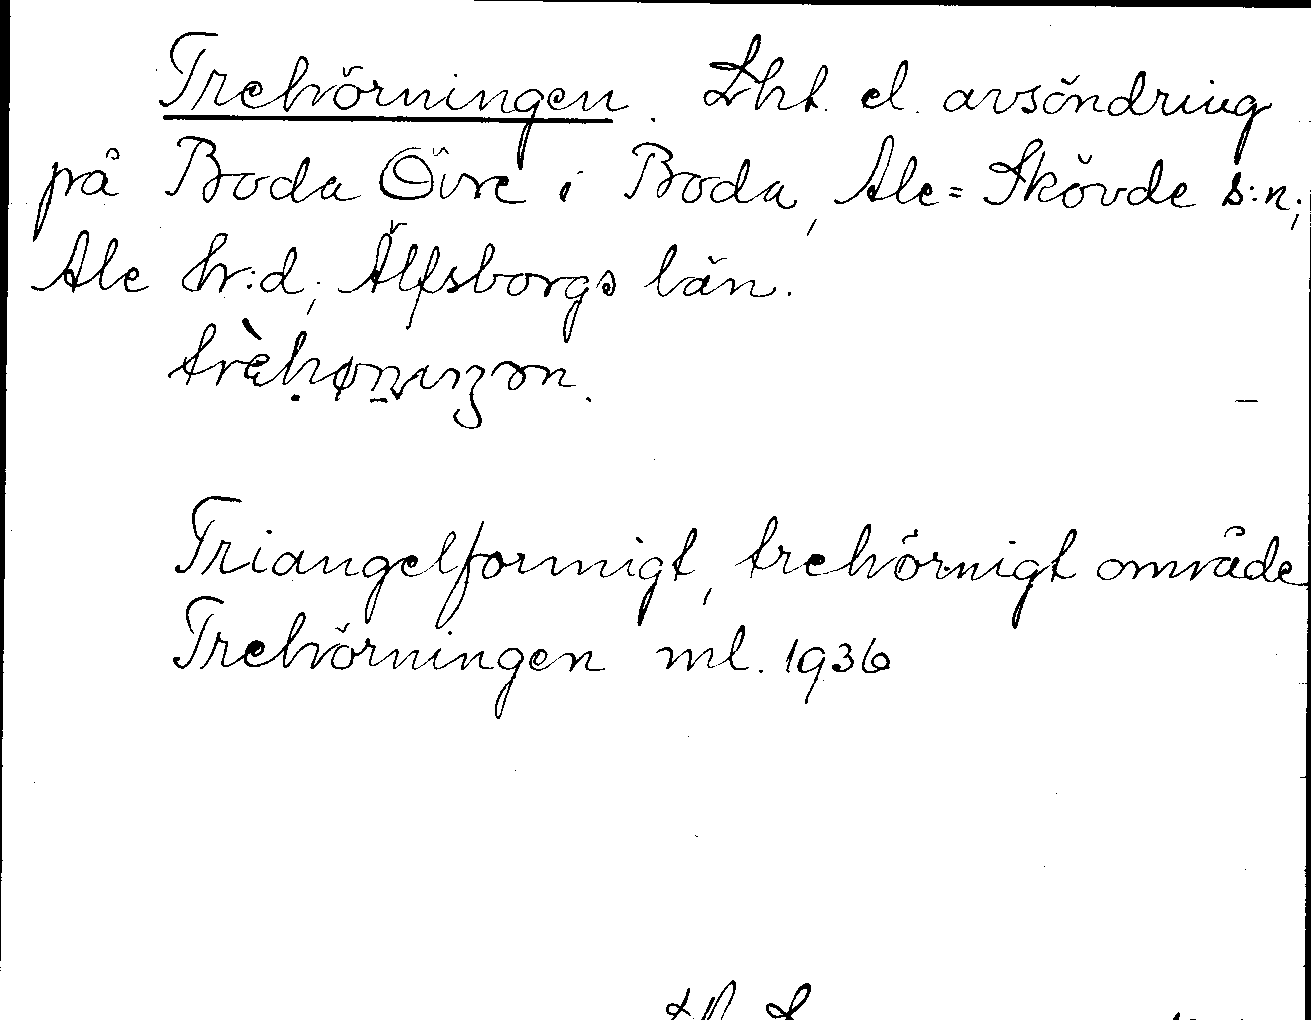 Trehörningen. Lht. el. avsöndring
på Boda Övre i Boda, Ale=Skövde s:n;
Ale hr:d; Älfsborgs län.
Triangelformigt, trehörnigt område
Trehörningen ml. 1936